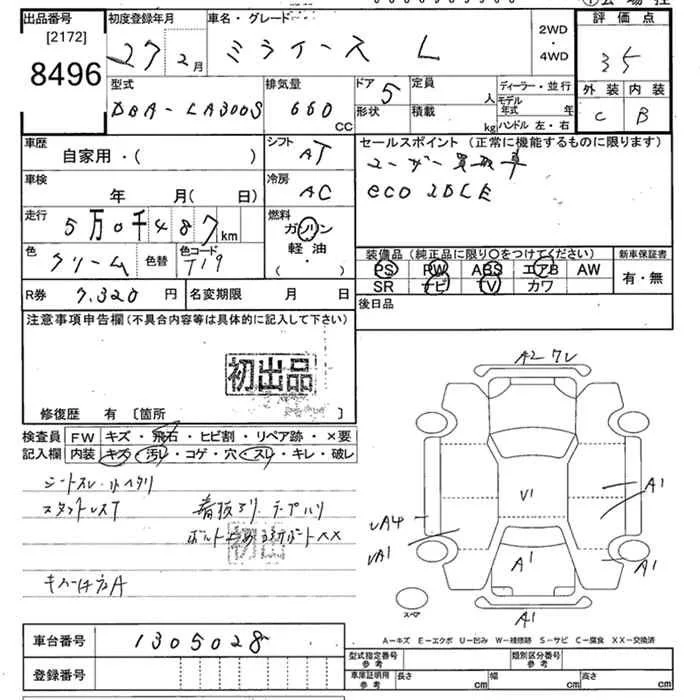 出品番号 初度登録年月 車名・グレード 2WD・4WD 評価点
[2172]
8496
27 2月 ミライース L 35
型式 排気量 ドア 定員 ディーラー・並行 外装 内装
DBA-LA300S 660 CC 5 人 モデル年式 年 C B
形状 積載 kg ハンドル 左・右
車歴 シフト セールスポイント (正常に機能するものに限ります)
自家用・( ) AT ユーザー買取車
車検 冷房 eco IDLE
年 月(日) AC
走行 燃料
5万0千487km ガソリン
軽油
( ・ )
色 色替 色コード 装備品(純正品に限り○をつけてください) 新車保証書
クリーム T19 PS PW ABS エアB AW 有・無
SR ナビ TV カワ
R券 7,320円 名変期限 月 日 後日品
注意事項申告欄(不具合内容等は具体的に記入して下さい)
初出品
修復歴 有 〔箇所 〕
検査員 FW キズ・飛石・ヒビ割・リペア跡・×要
記入欄 内装 キズ・汚レ・コゲ・穴・スレ・キレ・破レ
シートスレ・小ヘタリ
初出品
A2
V1
A1
UA4
UA1
A1
A1
A1
スペア
A-キズ E-エクボ U-凹み W-補修跡 S-サビ C-腐食 XX-交換済
車台番号 1305028
登録番号
型式指定番号 参考 類別区分番号 参考
車庫証明用 参考 長さ cm 幅 cm 高さ cm